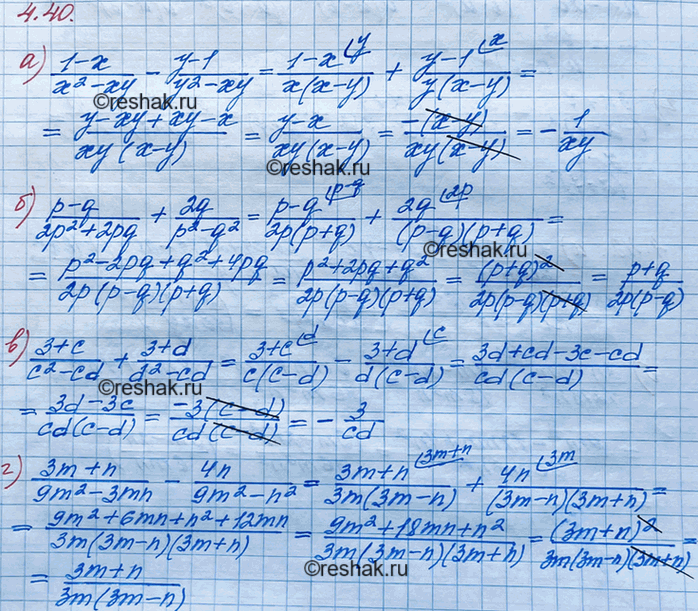 4.40.
а) (1-x)/(x²-xy) - (y-1)/(y²-xy) = (1-x)/(x(x-y)) (y + (y-1)/(y(x-y)) (x =
= (y-xy+xy-x)/(xy(x-y)) = (y-x)/(xy(x-y)) = (-(x-y))/(xy(x-y)) = - 1/(xy)
©reshak.ru ©reshak.ru
б) (p-q)/(2p²+2pq) + (2q)/(p²-q²) = (p-q)/(2p(p+q)) (p-q + (2q)/((p-q)(p+q)) (2p =
= (p²-2pq+q²+4pq)/(2p(p-q)(p+q)) = (p²+2pq+q²)/(2p(p-q)(p+q)) = (p+q)²/(2p(p-q)(p+q)) = (p+q)/(2p(p-q))
в) (3+c)/(c²-cd) + (3+d)/(d²-cd) = (3+c)/(c(c-d)) (d - (3+d)/(d(c-d)) (c = (3d+cd-3c-cd)/(cd(c-d)) =
©reshak.ru
= (3d-3c)/(cd(c-d)) = (-3(c-d))/(cd(c-d)) = - 3/(cd)
г) (3m+n)/(9m²-3mn) - (4n)/(9m²-n²) = (3m+n)/(3m(3m-n)) (3m+n + (4n)/((3m-n)(3m+n)) (3m =
= (9m²+6mn+n²+12mn)/(3m(3m-n)(3m+n)) = (9m²+18mn+n²)/(3m(3m-n)(3m+n)) = (3m+n)²/(3m(3m-n)(3m+n)) =
= (3m+n)/(3m(3m-n))
©reshak.ru